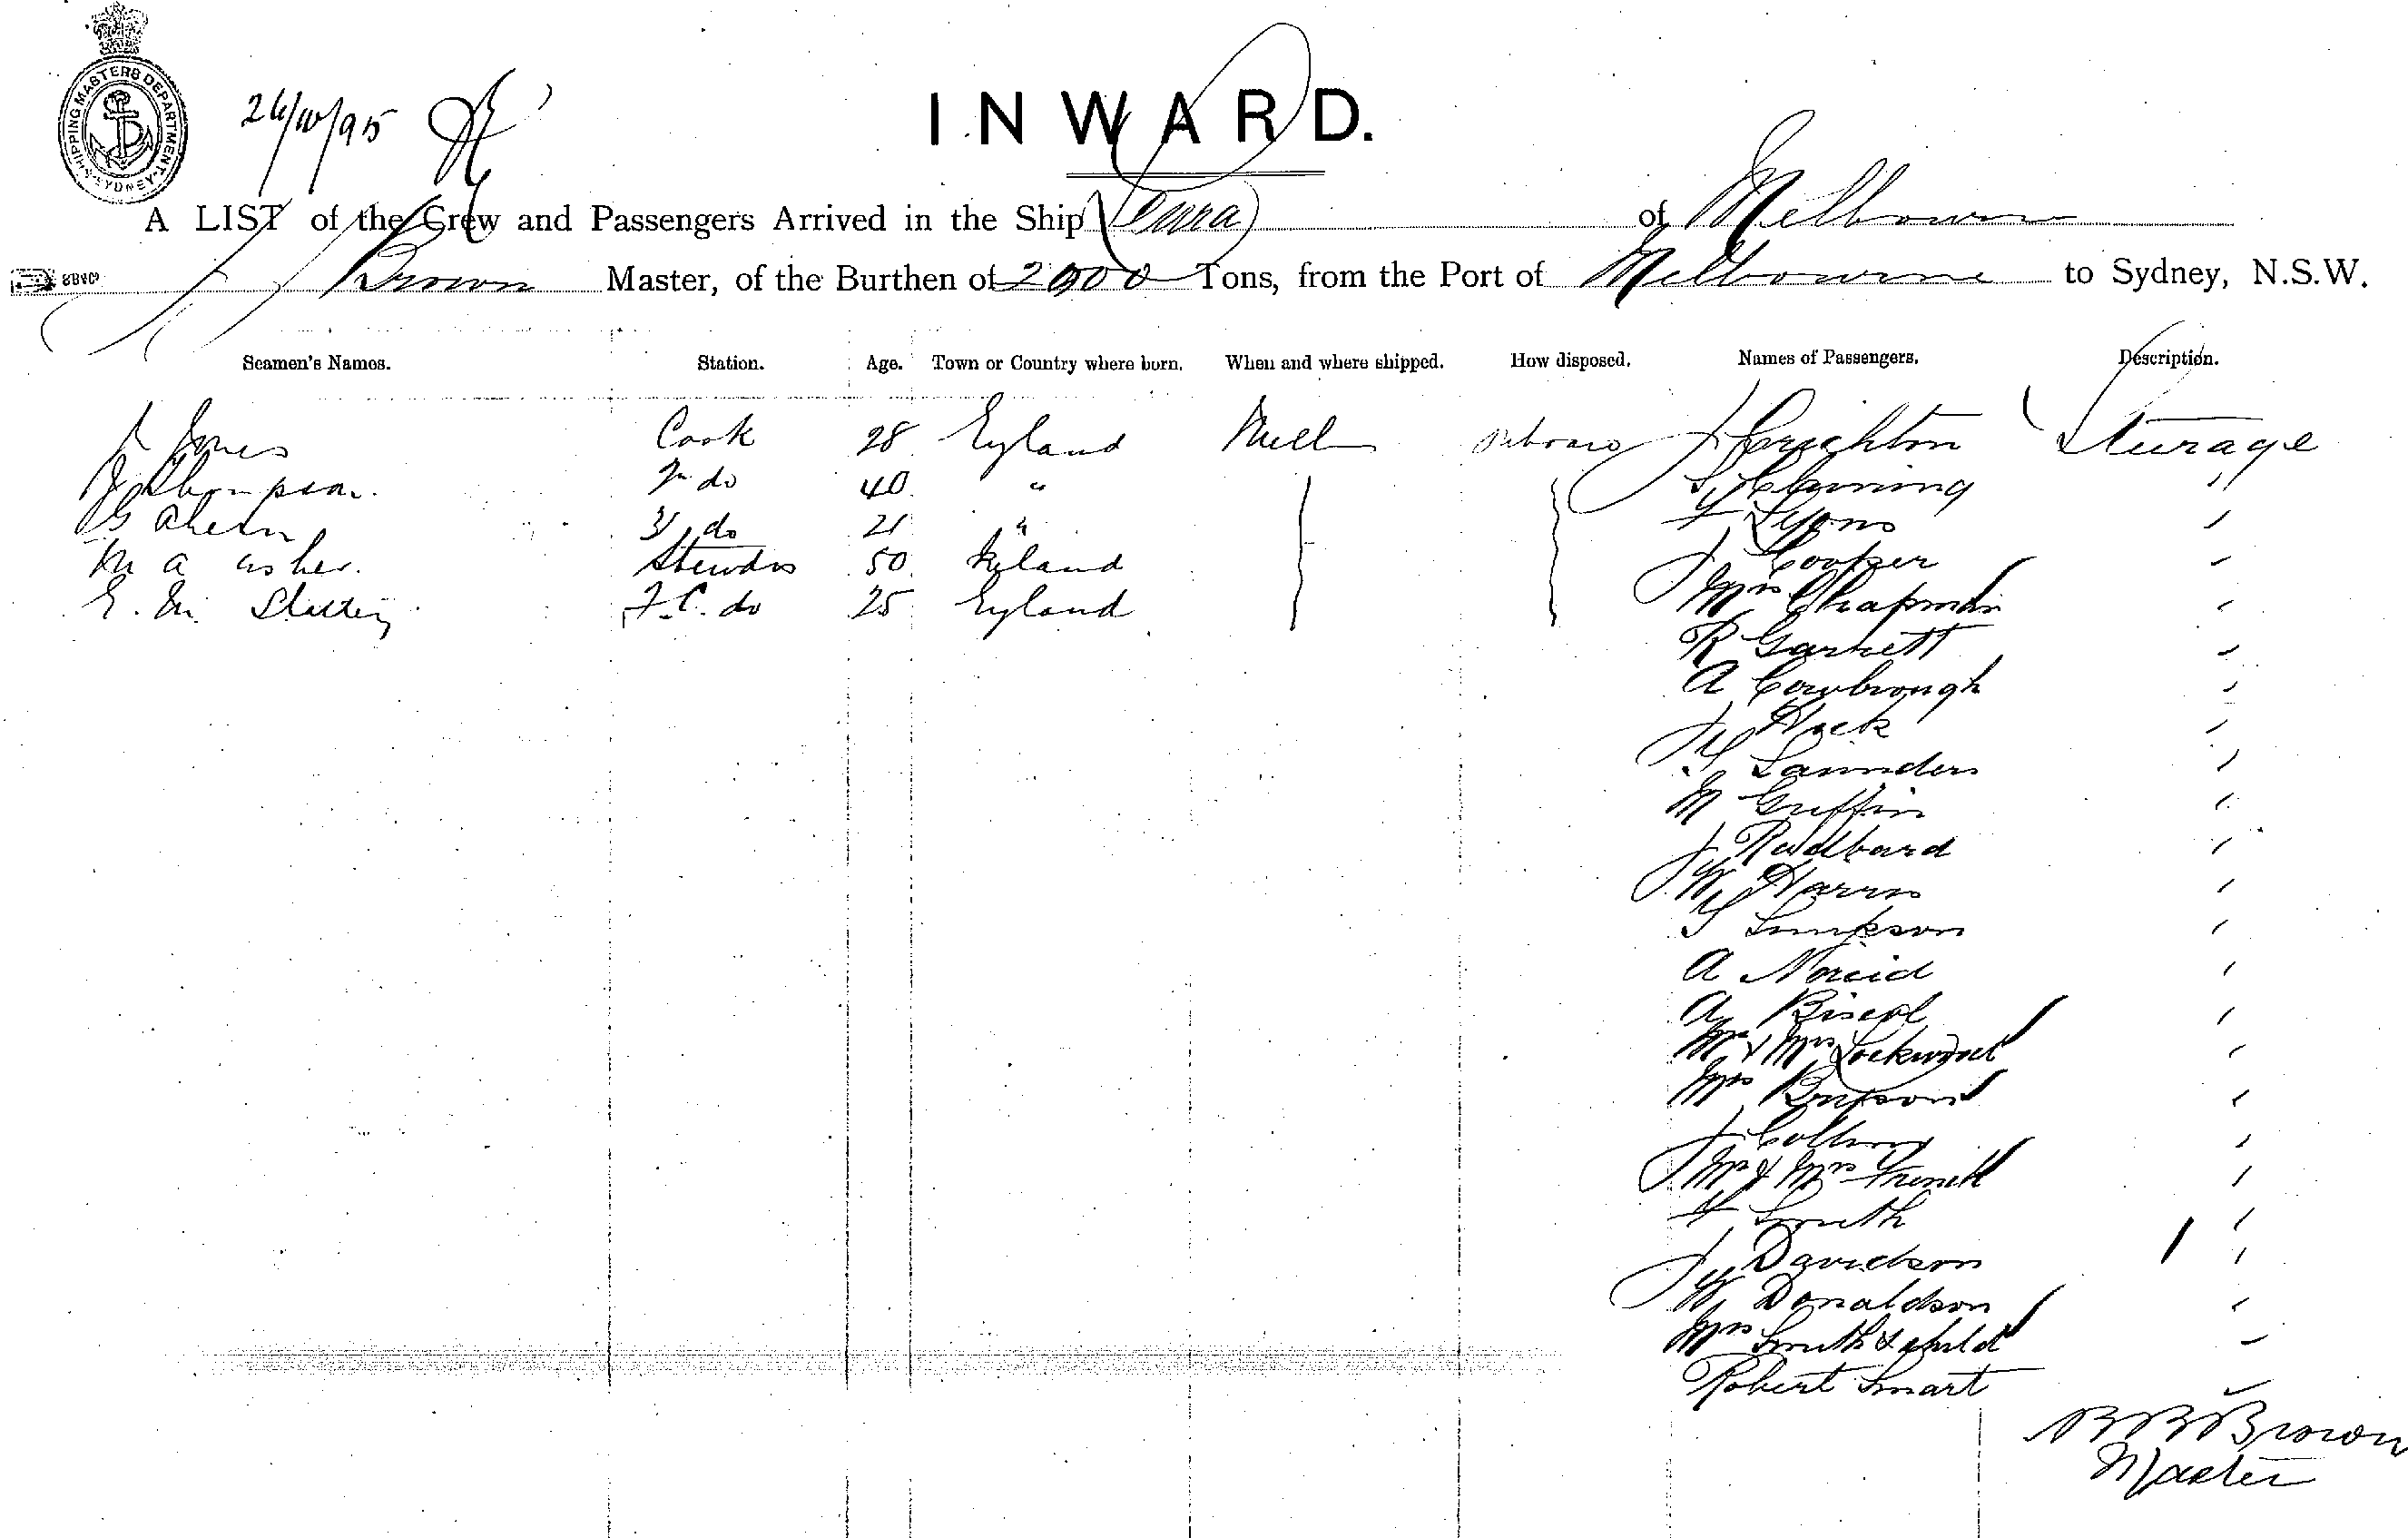 SHIPPING MASTERS DEPARTMENT SYDNEY
26/10/95
INWARD.
A LIST of the Crew and Passengers Arrived in the Ship of Melbourne
Brown Master, of the Burthen of 2000 Tons, from the Port of Melbourne to Sydney, N.S.W.
Seamen's Names. Station. Age. Town or Country where born. When and where shipped. How disposed. Names of Passengers. Description.
Jones Cook 28 England Melb J Crichton Steerage
Thompson 2n do 40 " "
G Ahern 3r do 21 " F Lyons
M A Usher Stewdss 50 Ireland J Cooper
E. M. Slattery F.C. do 25 England Mrs Chapman
R Garnett
A Cowbrough
J Hock
G Saunders
M Griffin
J Rudband
W Harris
G Simpson
A
A
Mr & Mrs Lockwood
Mrs
J
Mr & Mrs French
F Smith
J Davidson
W Donaldson
Mrs Smith & child
Robert Smart
Brown
Master